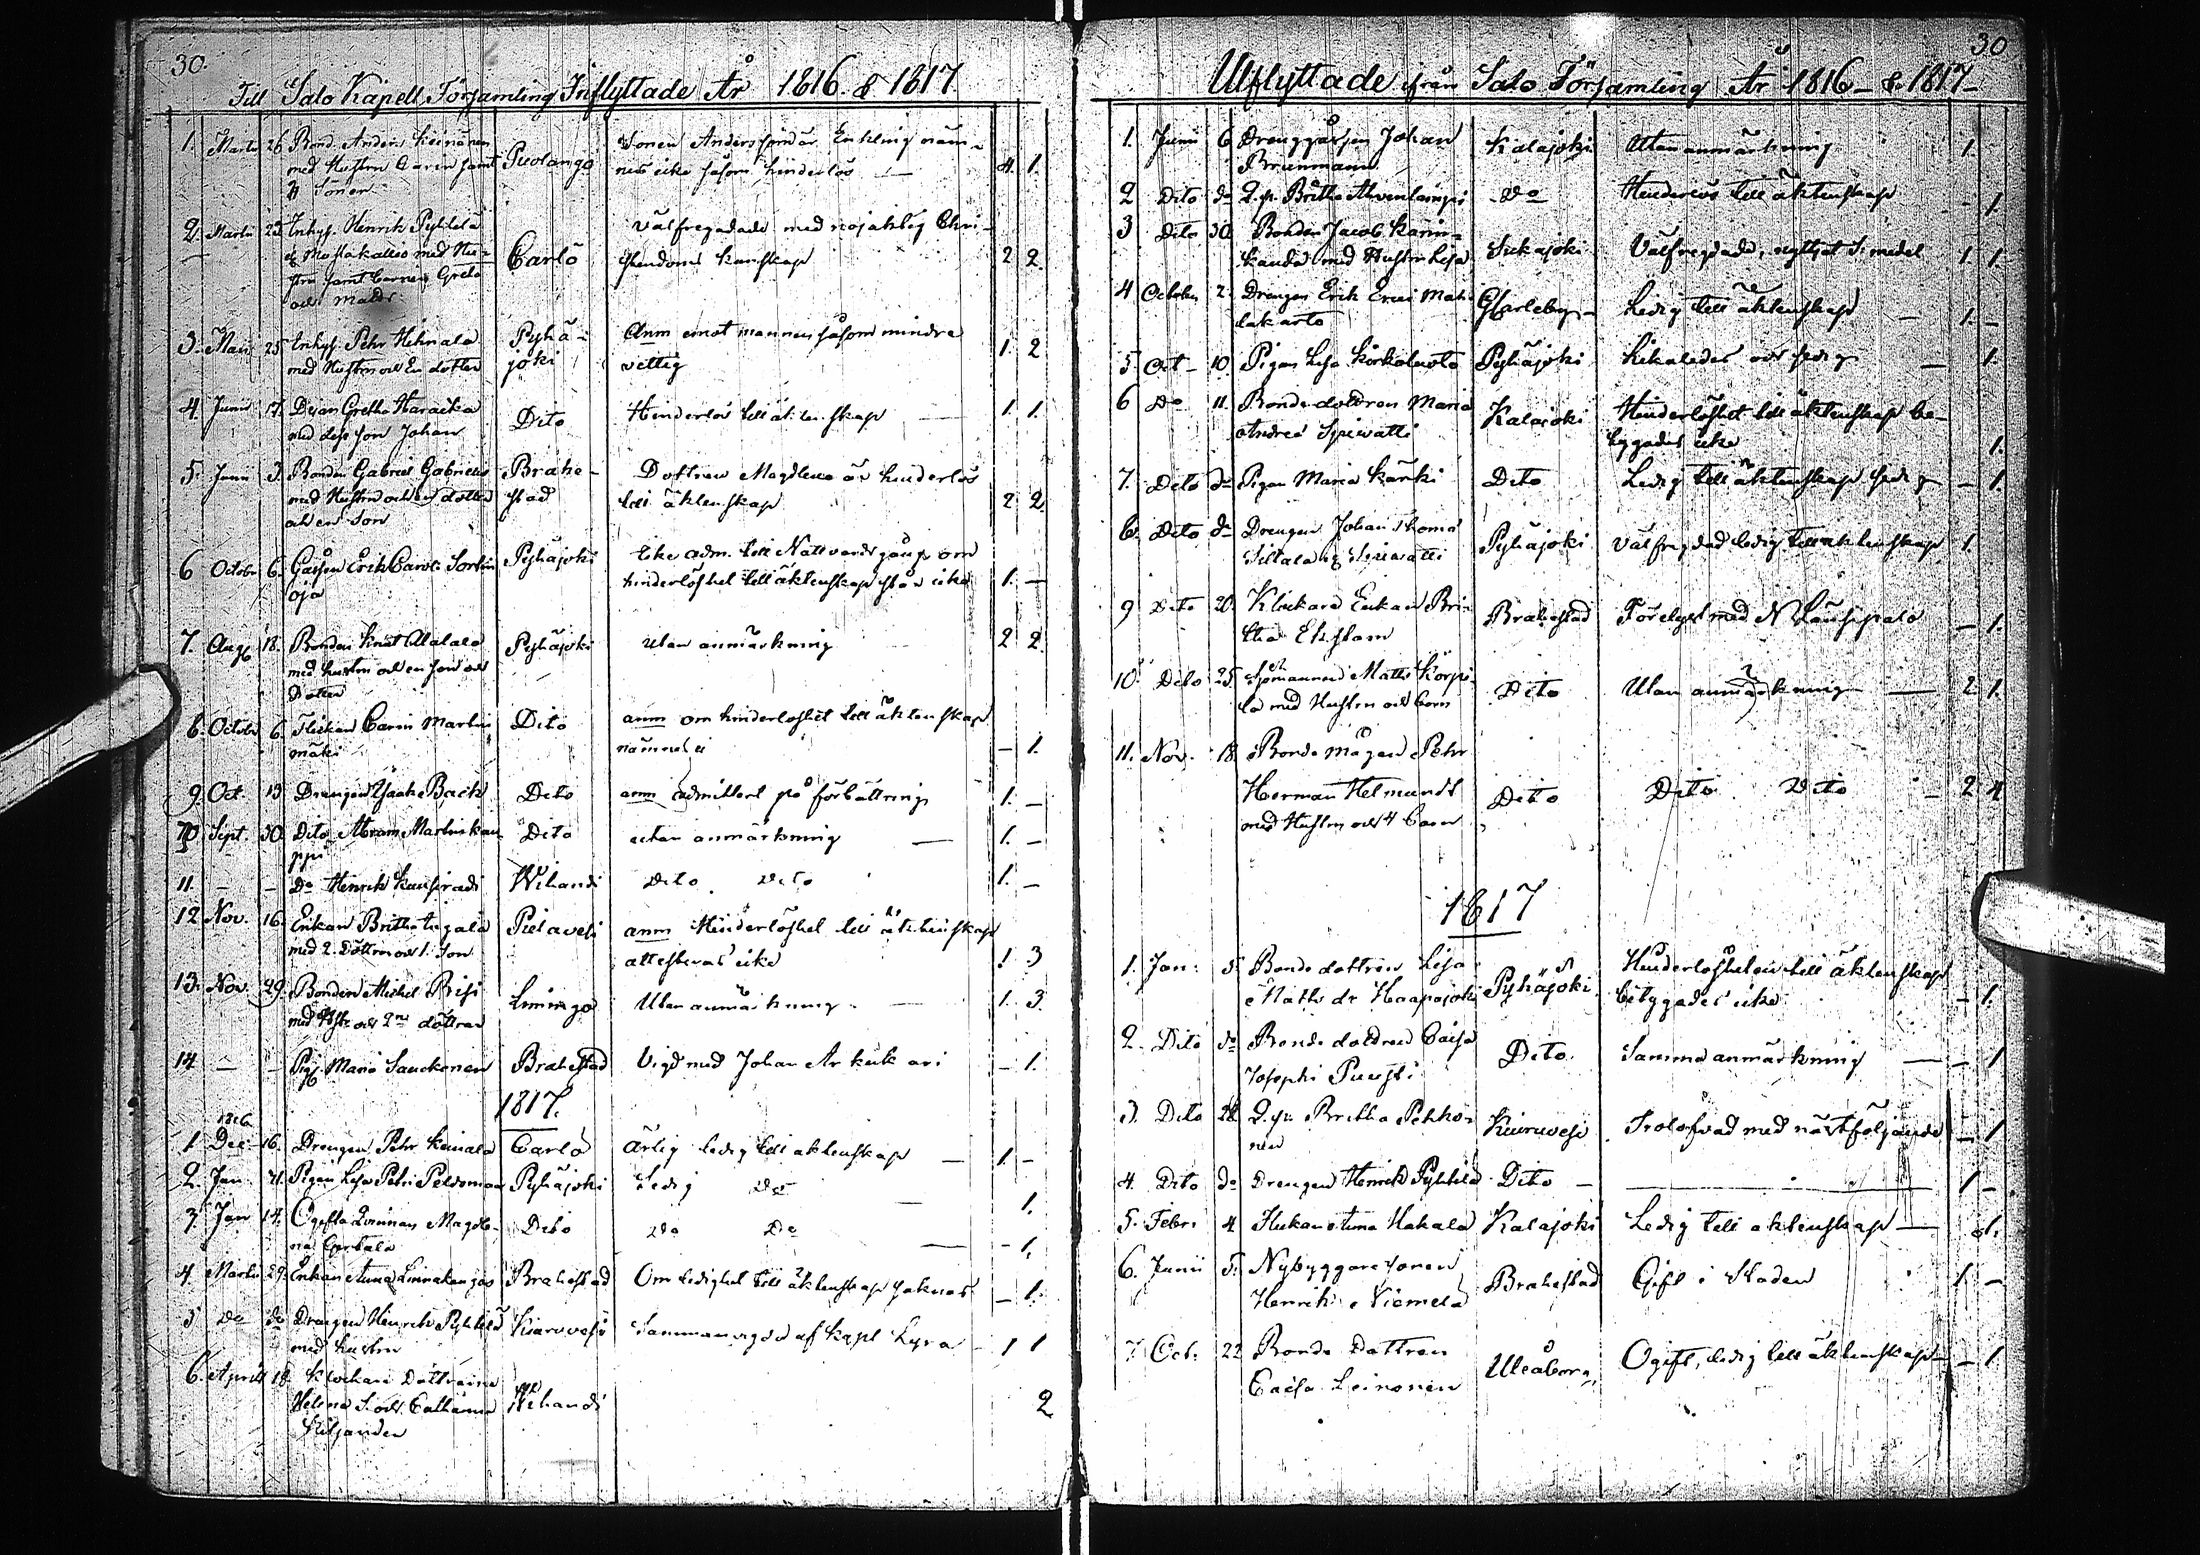 30.
Till Salo Kapell Församling Inflyttade År 1816. & 1817.
1. Martii 26 Bond. Anders Keinänen
med Hustru Carin samt Puolango
4 Söner
Sonen Anders
nes icke såsom hinderlös — 4. 1.
2. Martii 25 Inhys. Henrik Pyhtelä
med Hu-
stru samt Barnen Greta
och Matts
Carlö
Välfregdade med nöjaktig Chri-
stendoms kunskap 2 2.
3. Maii 25 Inhys. Pehr Hihnala
med Hustru och En dotter
Pyhä-
joki
Anm emot mannen såsom mindre
vettig 1. 2
4. Junii 17. Greta Haraska
med dess son Johan
Dito Hinderlös till äktenskap — 1. 1.
5. Junii 3. Bonden Gabriel Gabrielss
med Hustru och en dotter
och en Son
Brahe-
stad
Dottren Magdlena är hinderlös
till äktenskap 2. 2
6 Octobr 6. Gåssen Erik Caroli
oja
Pyhäjoki
Icke adm. till Nattvards gång, om
hinderlöshet till äktenskap står icke 1. —
7. Aug 18. Bonden Knut Alatalo
med hustru och en son och
Dotter
Pyhäjoki utan anmärkning 2 2.
8. Octobr 6. Flickan Carin Martin
mäki
Dito
anm om hinderlöshet till äktenskap
nämnes ei — 1.
9. Oct. 13 Drengen Isaak Back Dito anm admitterl på förbättring 1. —
10 Sept. 30. Dito Abram Martinkau
ppi
Dito utan anmärkning — 1. —
11. — — Do Henrik Wihandi Dito Dito 1. —
12 Nov. 16. Enkan Britha
med 2. Döttrar och 1. Son
Pielavesi
anm Hinderlöshet till äktenskap
attesteras icke 1 3
13. Nov. 29. Bonden Michel Risi
med Hust. och 2ne döttrar
Limingo Utan anmärkning — 1. 3.
14 — — Pig. Maria Sauckonen Brahestad Vigd med Johan Arkukari — 1.
1817.
1816
1. Dec 16. Drengen Pehr Keinala Carlö Ärlig ledig till äktenskap — 1. —
2. Jan 4. Pigan Lisa Petri Peldoma Pyhäjoki Ledig Do 1.
3. Jan 14. Ogifta Qvinnan Magdle-
na
Dito Do Do — — 1.
4. Martii 29. Enkan Anna Linnakangas Brahestad Om ledighet till äktenskap saknas — 1.
5 Do do Drengen Henrik Pyhtilä
med hustru
Kiuruvesi Sammanvigde af Kapl Lyra — 1 1
6. Aprill 18. Klockare Döttrarne
Helena S. och Catharina
Wihandi 2
30
Utflyttade ifrån Salo Församling År 1816 — & 1817 —
1. Junii 6 Drenggåssen Johan
Brunman
Kalajoki Utan anmärkning 1.
2 Dito do Q.p. Britha Ahvenlampi Do Hinderlös till äktenskap — 1.
3 Dito 30 Bonden Jacob Karin-
kanda med Hustru Lisa
Sikajoki Välfregdade, 1. 1.
4 October 2. Drengen Erik Erici Mati
lakarto
GCarleby Ledig till äktenskap — 1. —
5. Oct — 10. Pigan Lisa Pyhäjoki Likaledes och frdig — 1.
6 Do 11. Bonde dottren Maria
Andreæ
Kalajoki
Hinderlöshet till äktenskap be-
tygades icke 1.
7. Dito do Pigan Maria Karki Dito Ledig till äktenskap — 1.
8. Dito do Drengen Johan Thomæ
Siltala
Pyhäjoki Välfregdad ledig till äktenskap 1.
9 Dito 20. Klockare Enkan Bri-
tha Ekstam
Brahestad Förelyst med — 1.
10. Dito 25. Sjömannen Matts Korpi
la med Hustru och Barn
Dito Utan anmärkning — 2 1.
11. Nov. 18. Bonde mågen Pehr
Herman Helmundt
med Hustru och 4 Barn
Dito Dito Dito — 2 4
1817
1. Jan: 5. Bonde dottren Lisa
Matts dr Haapajoki
Pyhäjoki.
Hinderlösheten till äktenskap
betygades icke — 1.
2. Dito do Bonde dottren Caisa
Josephi Puusti
Dito. Samma anmärkning — — 1
3. Dito 28. Q.p. Britha Pehko-
nen
Kiuruvesi Trolofvad med nästföljande — 1
4. Dito do Drengen Henrik Pyhtilä Dito — 1 —
5. Febr. 4 Flickan Anna Hakala Kalajoki Ledig till äktenskap — 1.
6. Junii 5. Nybyggaresonen
Henrik Niemelä
Brahestad Gift i Staden 1. —
7. Oct. 22 Bonde Dottren
Caisa Leinonen
Uleåborg, Ogift, ledig till äktenskap — — 1.